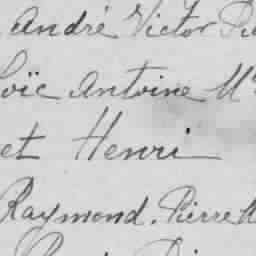 André Victor
Loïc Antoine
et Henri
Raymond. Pierre